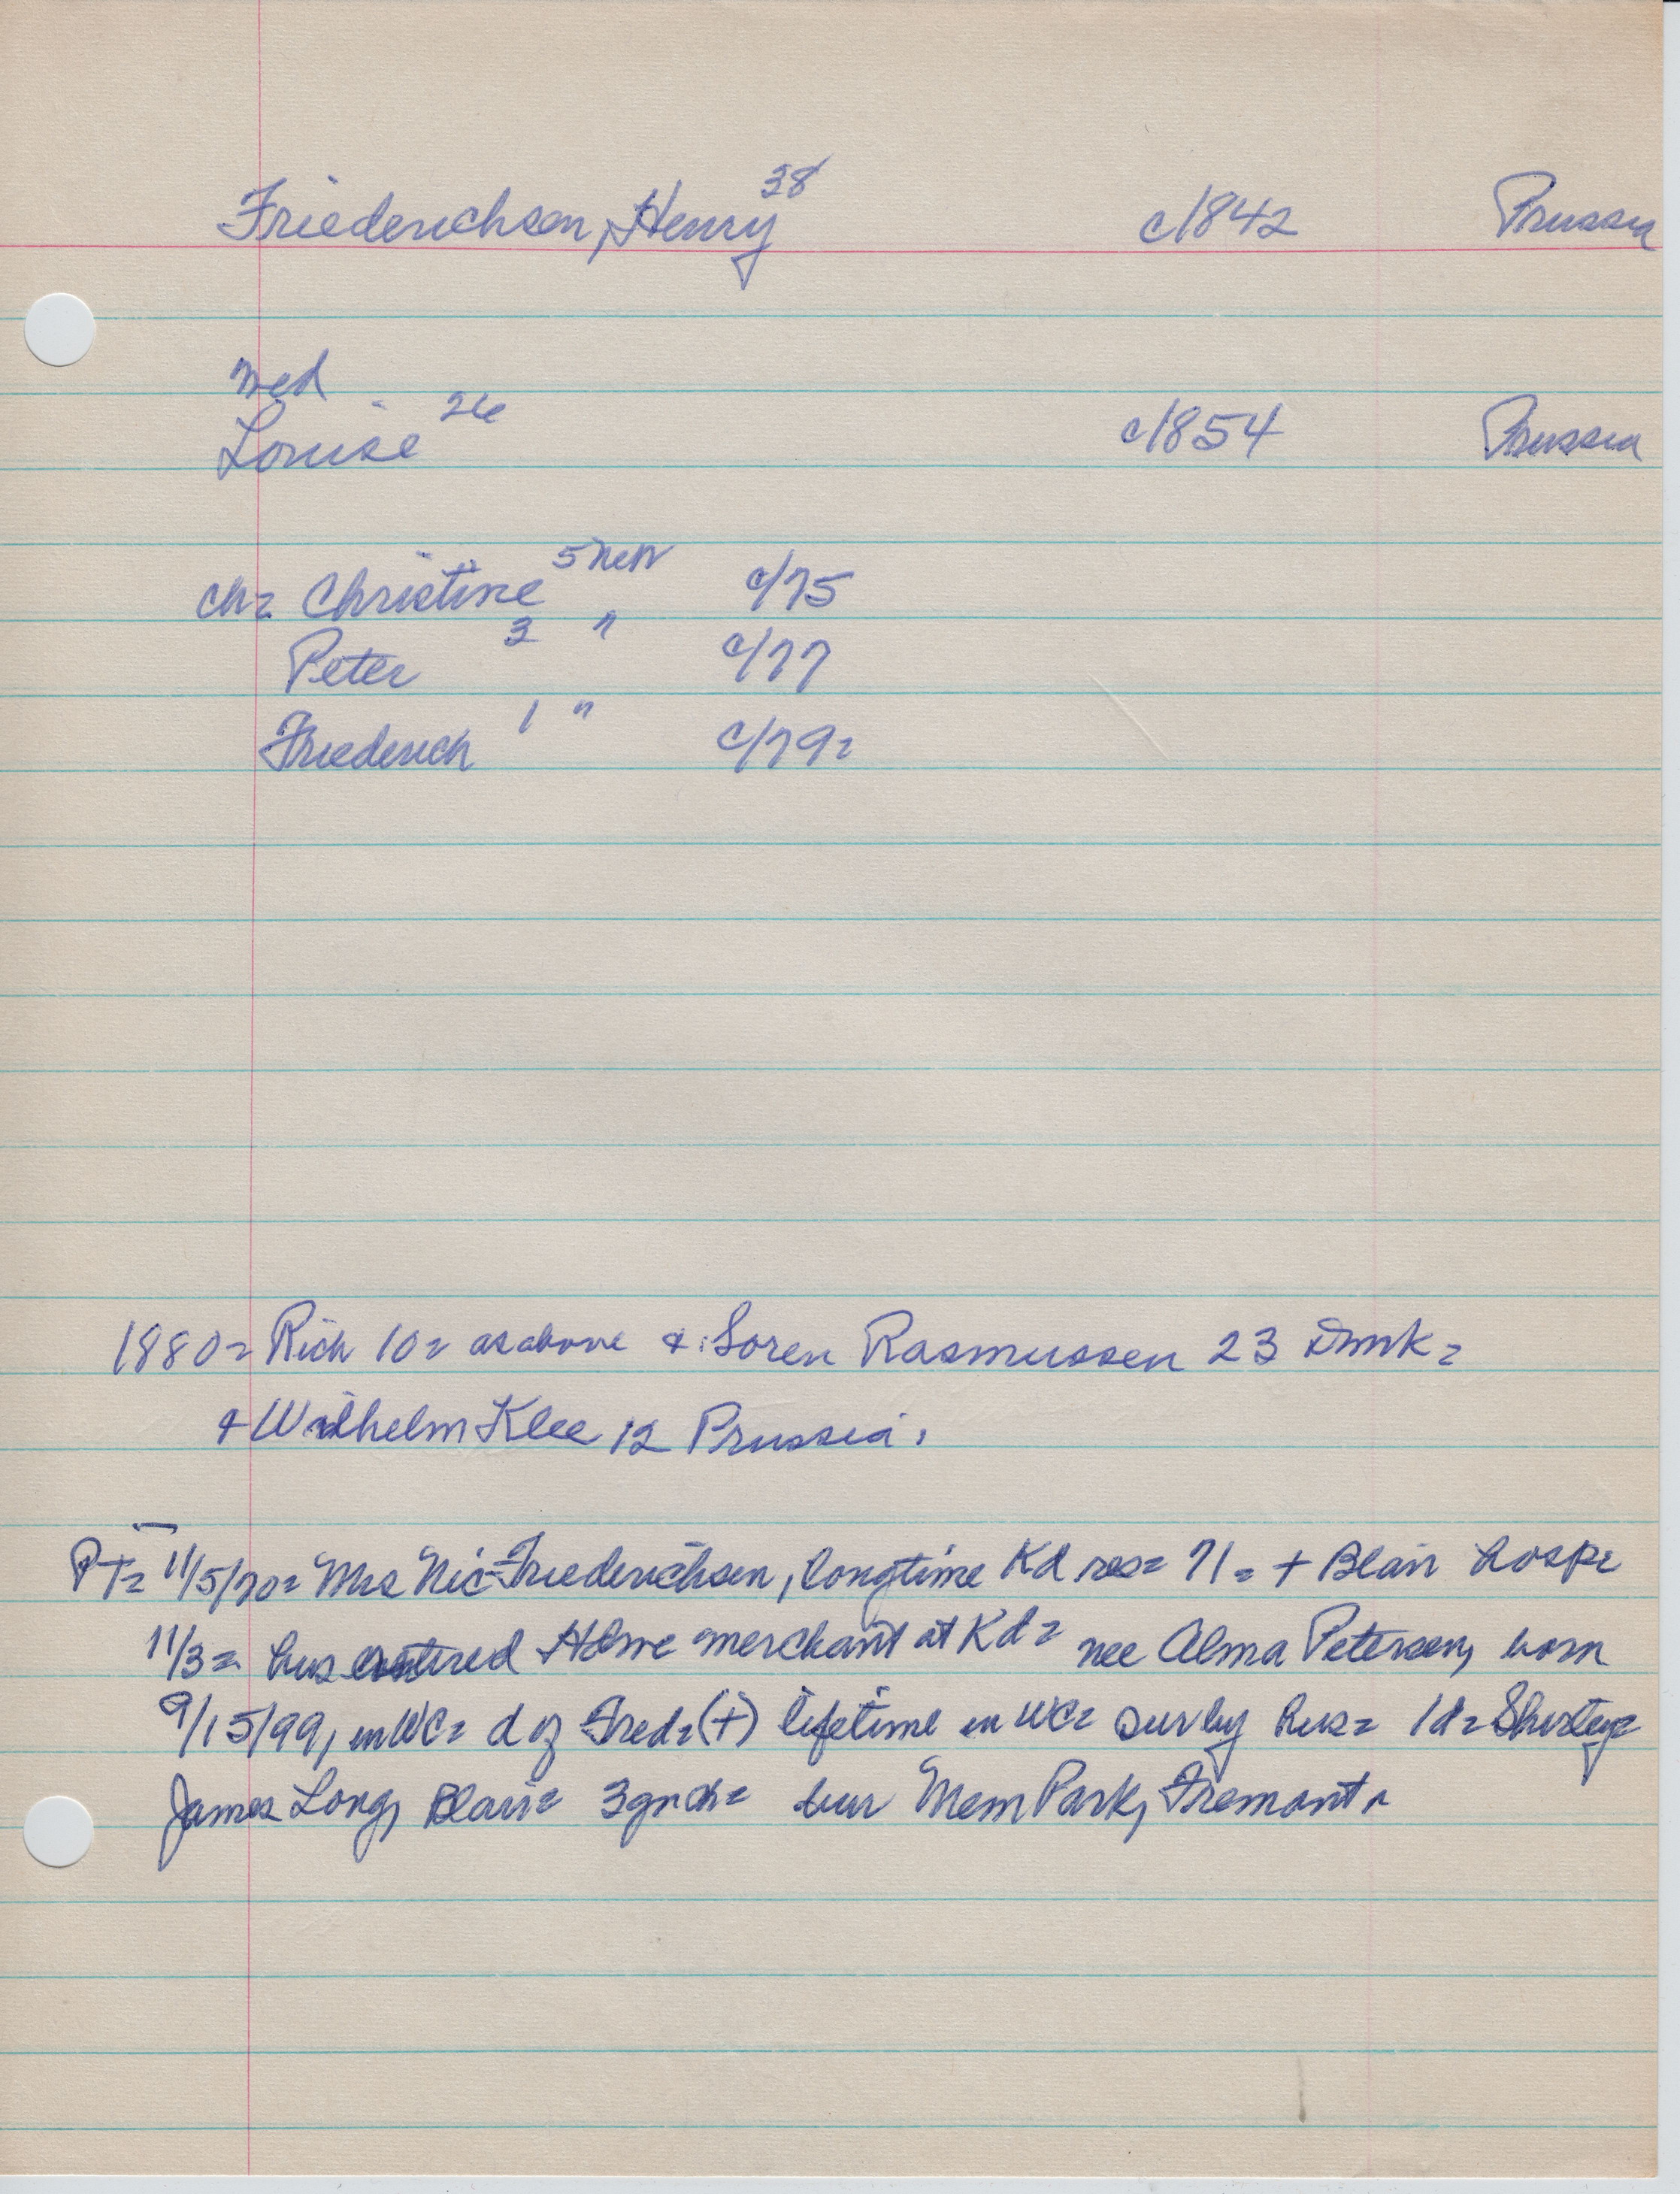 Friederichsen, Henry 38 c1842 Prussia
med
Louise 26 c1854 Prussia
ch= Christine 5 Neb c/75
Peter 3 " c/77
Friederich 1 " c/79=
1880= Rich 10= as above & Soren Rasmussen 23 Dmk=
& Wilhelm Klee 12 Prussia.
PT= 11/5/70= Mrs Nic Friederichsen, longtime Kd res= 71= + Blair Hosp=
11/3= hus retired merchant at Kd= nee Alma Petersen, born
9/15/99, in WC= d of Fred=(+) lifetime in WC= sur by hus= 1d= Shirley=
James Long, Blair= 3 gr ch= bur Mem Park, Fremont.